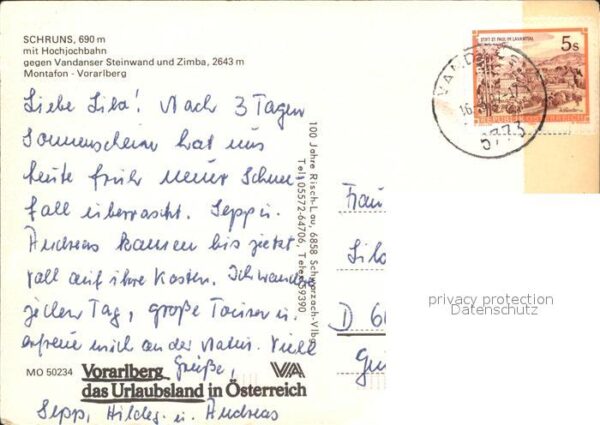 SCHRUNS, 690 m
mit Hochjochbahn
gegen Vandanser Steinwand und Zimba, 2643 m
Montafon - Vorarlberg
Liebe Lilo! Nach 3 Tagen
Sonnenschein hat uns
heute früh neuer Schnee
fall überrascht. Sepp u.
Andreas kamen bis jetzt
voll auf ihre Kosten. Ich wandere
jeden Tag, große Touren u.
erfreue mich an der Natur. Viele
Grüße,
Sepp, Hildeg. u. Andreas
MO 50234
Vorarlberg
das Urlaubsland in Österreich
VA
100 Jahre Risch-Lau, 6858 Schwarzach-Vlbg.
Tel. 05572-64706, Telex 59390
STIFT ST. PAUL IM LAVANTTAL
5s
VANDANS
6773
Frau
Lilo
D 6
privacy protection
Datenschutz